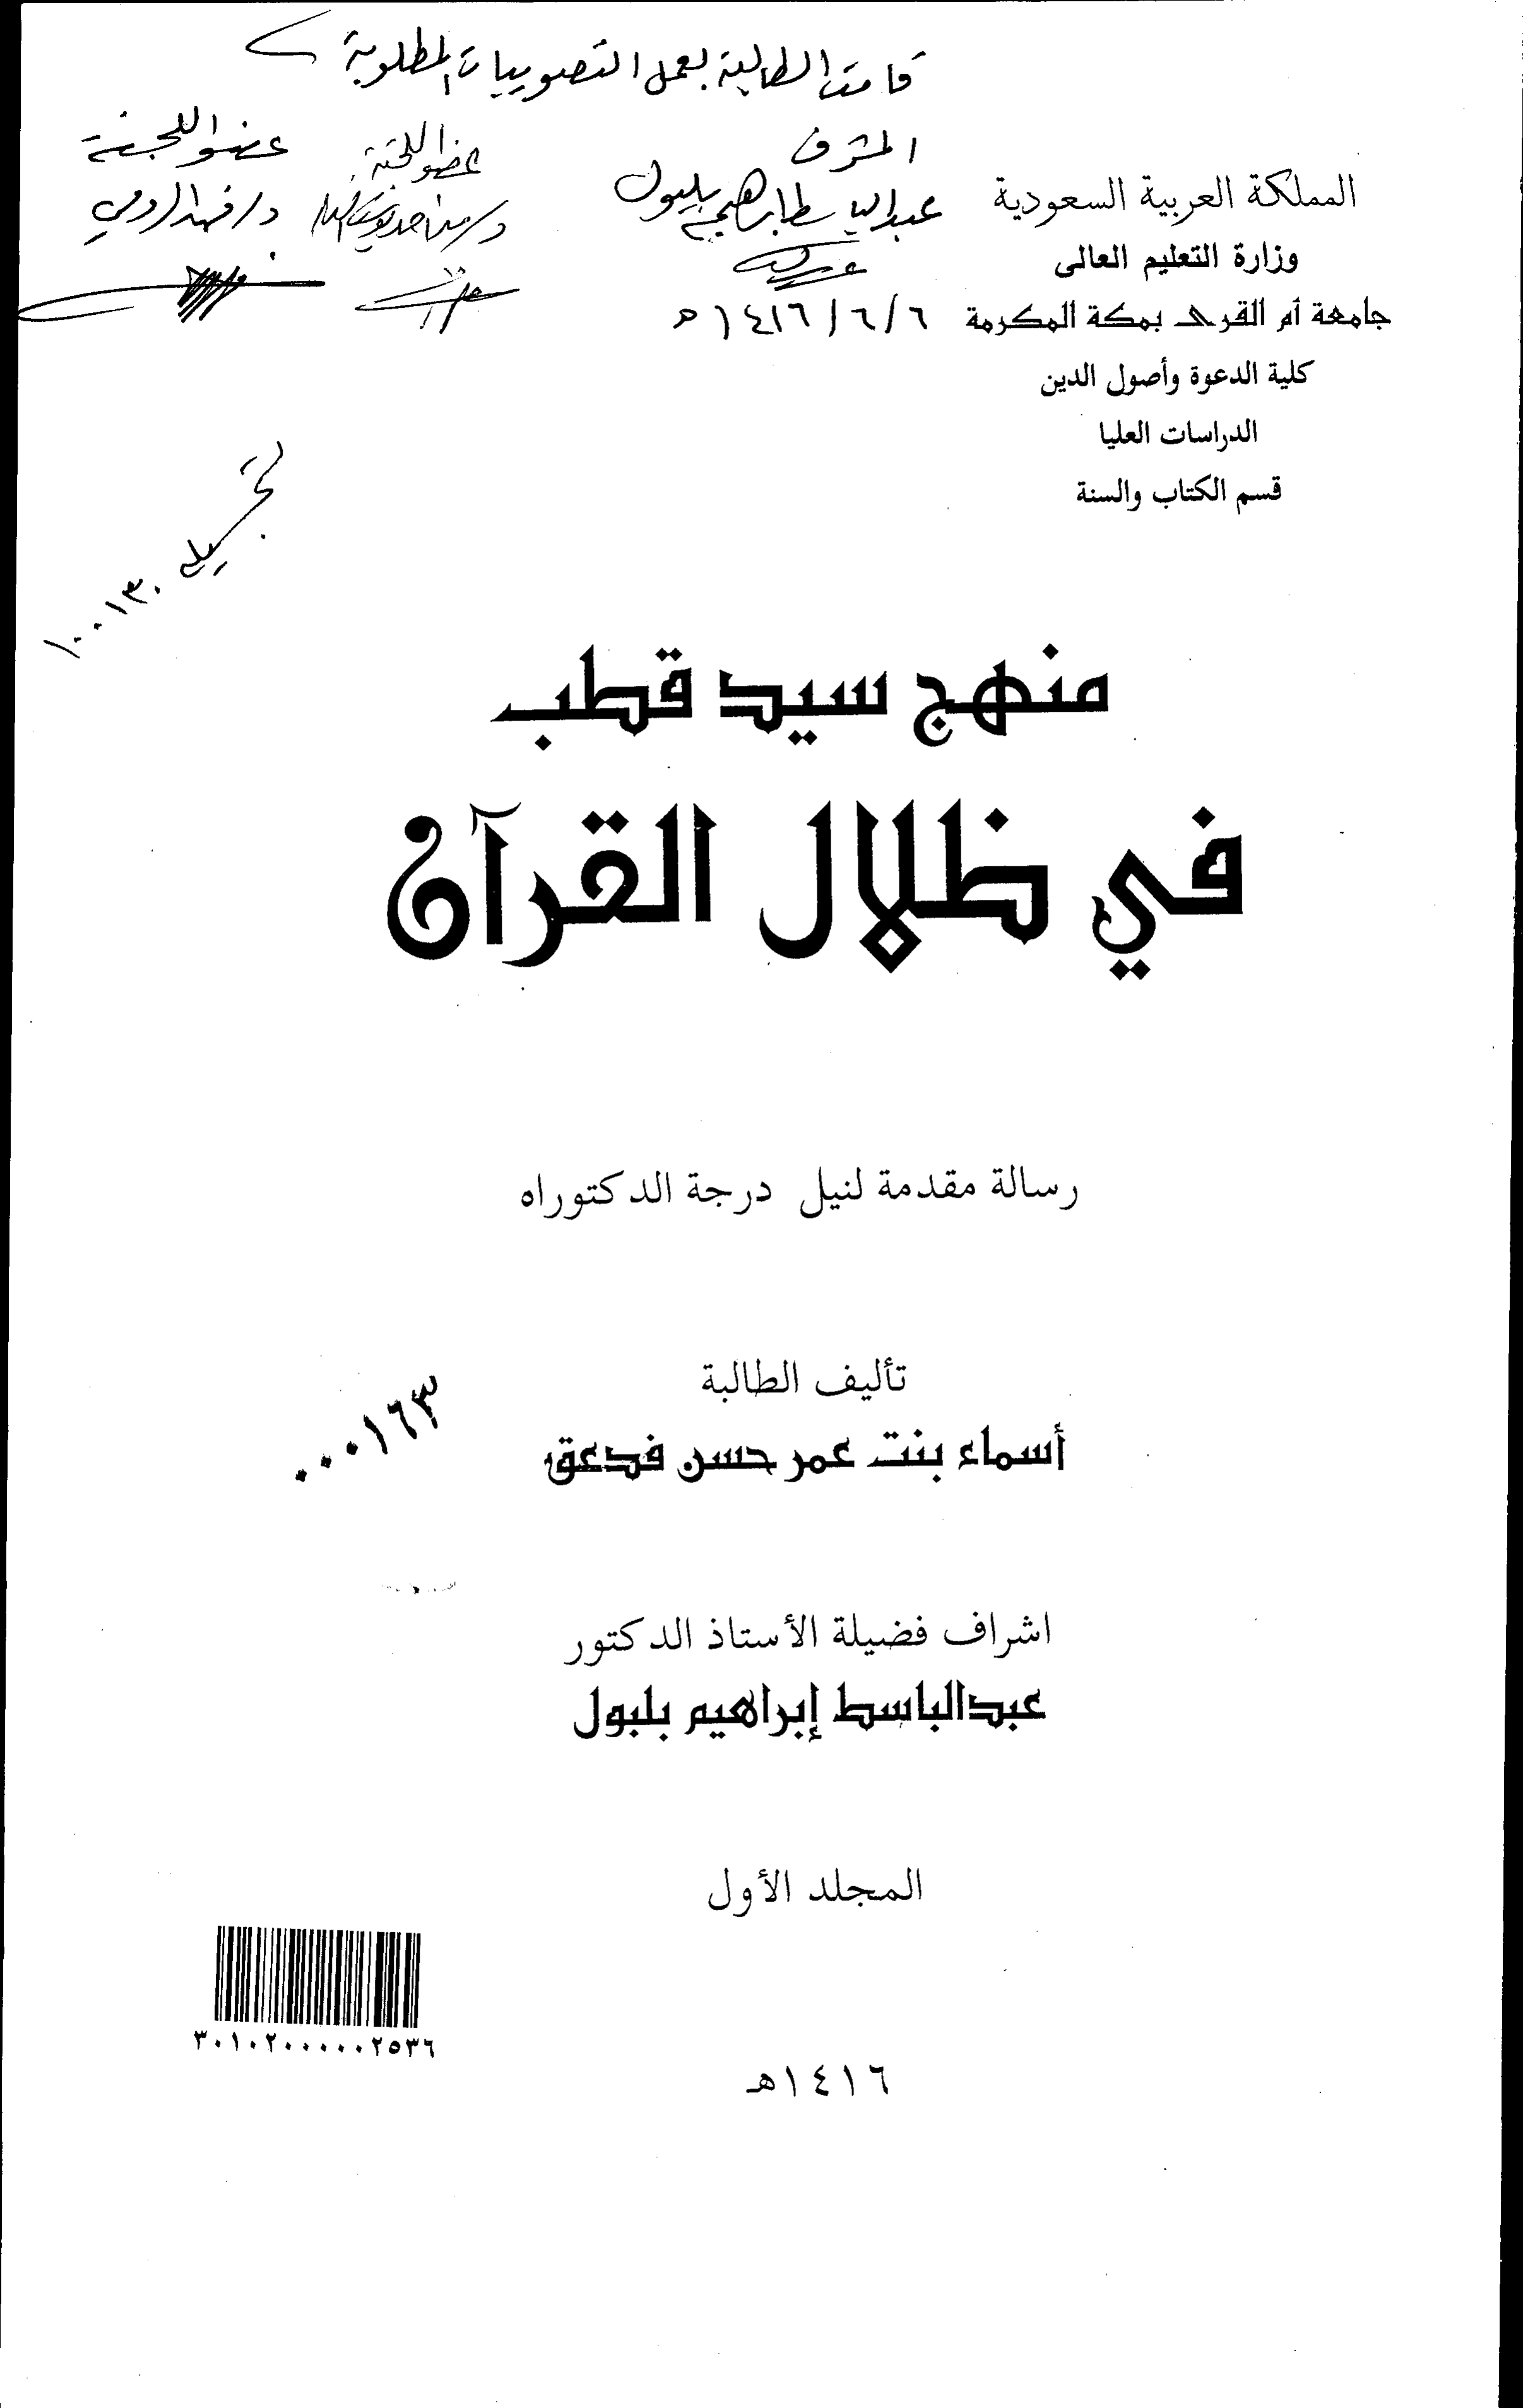 قامت الطالبة بعمل التصويبات المطلوبة
المشرف
عبدالباسط ابراهيم بلبول
١٤١٦/٦/٦ ه
عضو اللجنة
عضو اللجنة
د/ فهد الرومي
المملكة العربية السعودية
وزارة التعليم العالى
جامعة أم القرى بمكة المكرمة
كلية الدعوة وأصول الدين
الدراسات العليا
قسم الكتاب والسنة
١٠٠١٣٠
منهج سيد قطب
في ظلال القرآن
رسالة مقدمة لنيل درجة الدكتوراه
تأليف الطالبة
أسماء بنت عمر حسن فدعق
٠٠٠١٦٣
اشراف فضيلة الأستاذ الدكتور
عبدالباسط إبراهيم بلبول
المجلد الأول
٣٠١٠٢٠٠٠٠٠٢٥٣٦
١٤١٦هـ